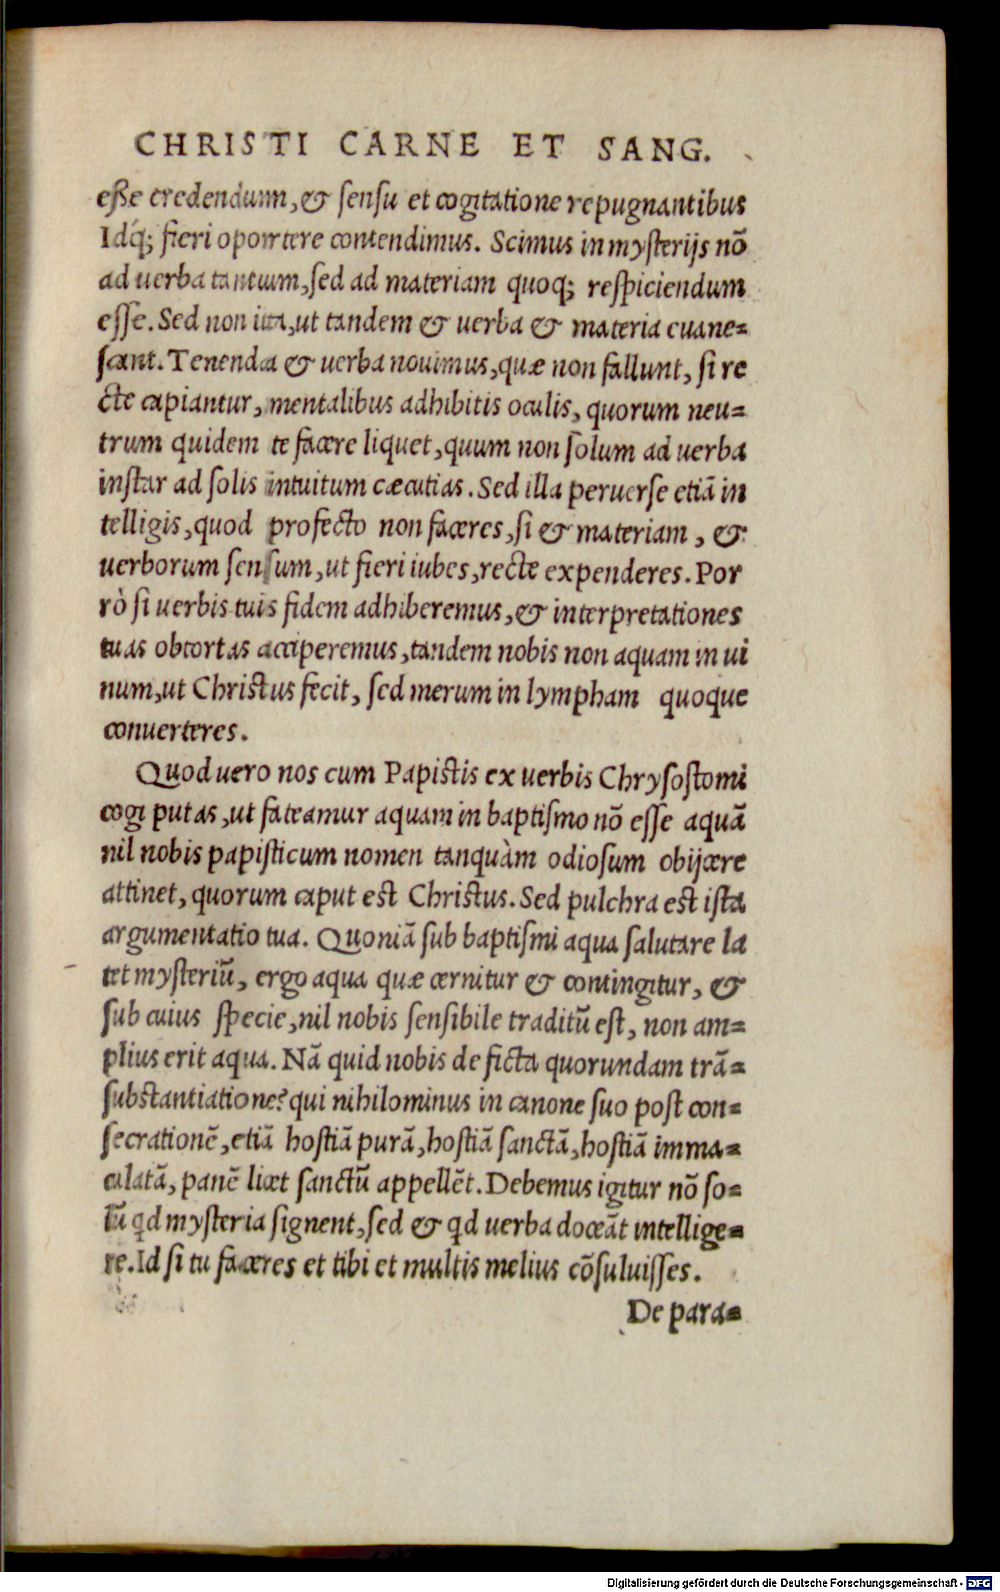 CHRISTI CARNE ET SANG.
eſſe credendum, & ſenſu et cogitatione repugnantibus
Idq́; fieri oportere contendimus. Scimus in myſterijs nō
ad uerba tantum, ſed ad materiam quoq; reſpiciendum
eſſe. Sed non ita, ut tandem & uerba & materia euane-
ſcant. Tenenda & uerba nouimus, quæ non fallunt, ſi re
cte capiantur, mentalibus adhibitis oculis, quorum neu-
trum quidem te facere liquet, quum non ſolum ad uerba
inſtar ad ſolis intuitum cæcutias. Sed illa peruerſe etiā in
telligis, quod profecto non faceres, ſi & materiam, &
uerborum ſenſum, ut fieri iubes, recte expenderes. Por
rò ſi uerbis tuis fidem adhiberemus, & interpretationes
tuas obtortas acciperemus, tandem nobis non aquam in ui
num, ut Chriſtus fecit, ſed merum in lympham quoque
conuerteres.
Quod uero nos cum Papiſtis ex uerbis Chryſoſtomi
cogi putas, ut fateamur aquam in baptiſmo nō eſſe aquā
nil nobis papiſticum nomen tanquàm odioſum obijcere
attinet, quorum caput eſt Chriſtus. Sed pulchra eſt iſta
argumentatio tua. Quoniā ſub baptiſmi aqua ſalutare la
tet myſteriū, ergo aqua quæ cernitur & contingitur, &
ſub cuius ſpecie, nil nobis ſenſibile traditū eſt, non am-
plius erit aqua. Nā quid nobis de ficta quorundam trā-
ſubſtantiatione? qui nihilominus in canone ſuo poſt con-
ſecrationē, etiā hoſtiā purā, hoſtiā ſanctā, hoſtiā imma-
culatā, panē licet ſanctū appellēt. Debemus igitur nō ſo-
lū qd myſteria ſignent, ſed & qd uerba doceāt intellige-
re. Id ſi tu faceres et tibi et multis melius cōſuluiſſes.
De para-
Digitalisierung gefördert durch die Deutsche Forschungsgemeinschaft - DFG